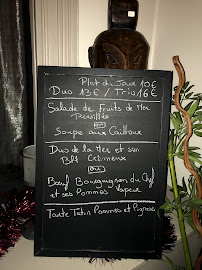 Plat du Jour 10€
Duo 13€ / Trio 16€
Salade de Fruits de Mer
Persillés
ou
Soupe aux Cailloux
Duo de la Mer et son
Blé Crémeux
ou
Bœuf Bourguignon du Chef
et ses Pommes Vapeur
Tarte Tatin Pommes et Pignons